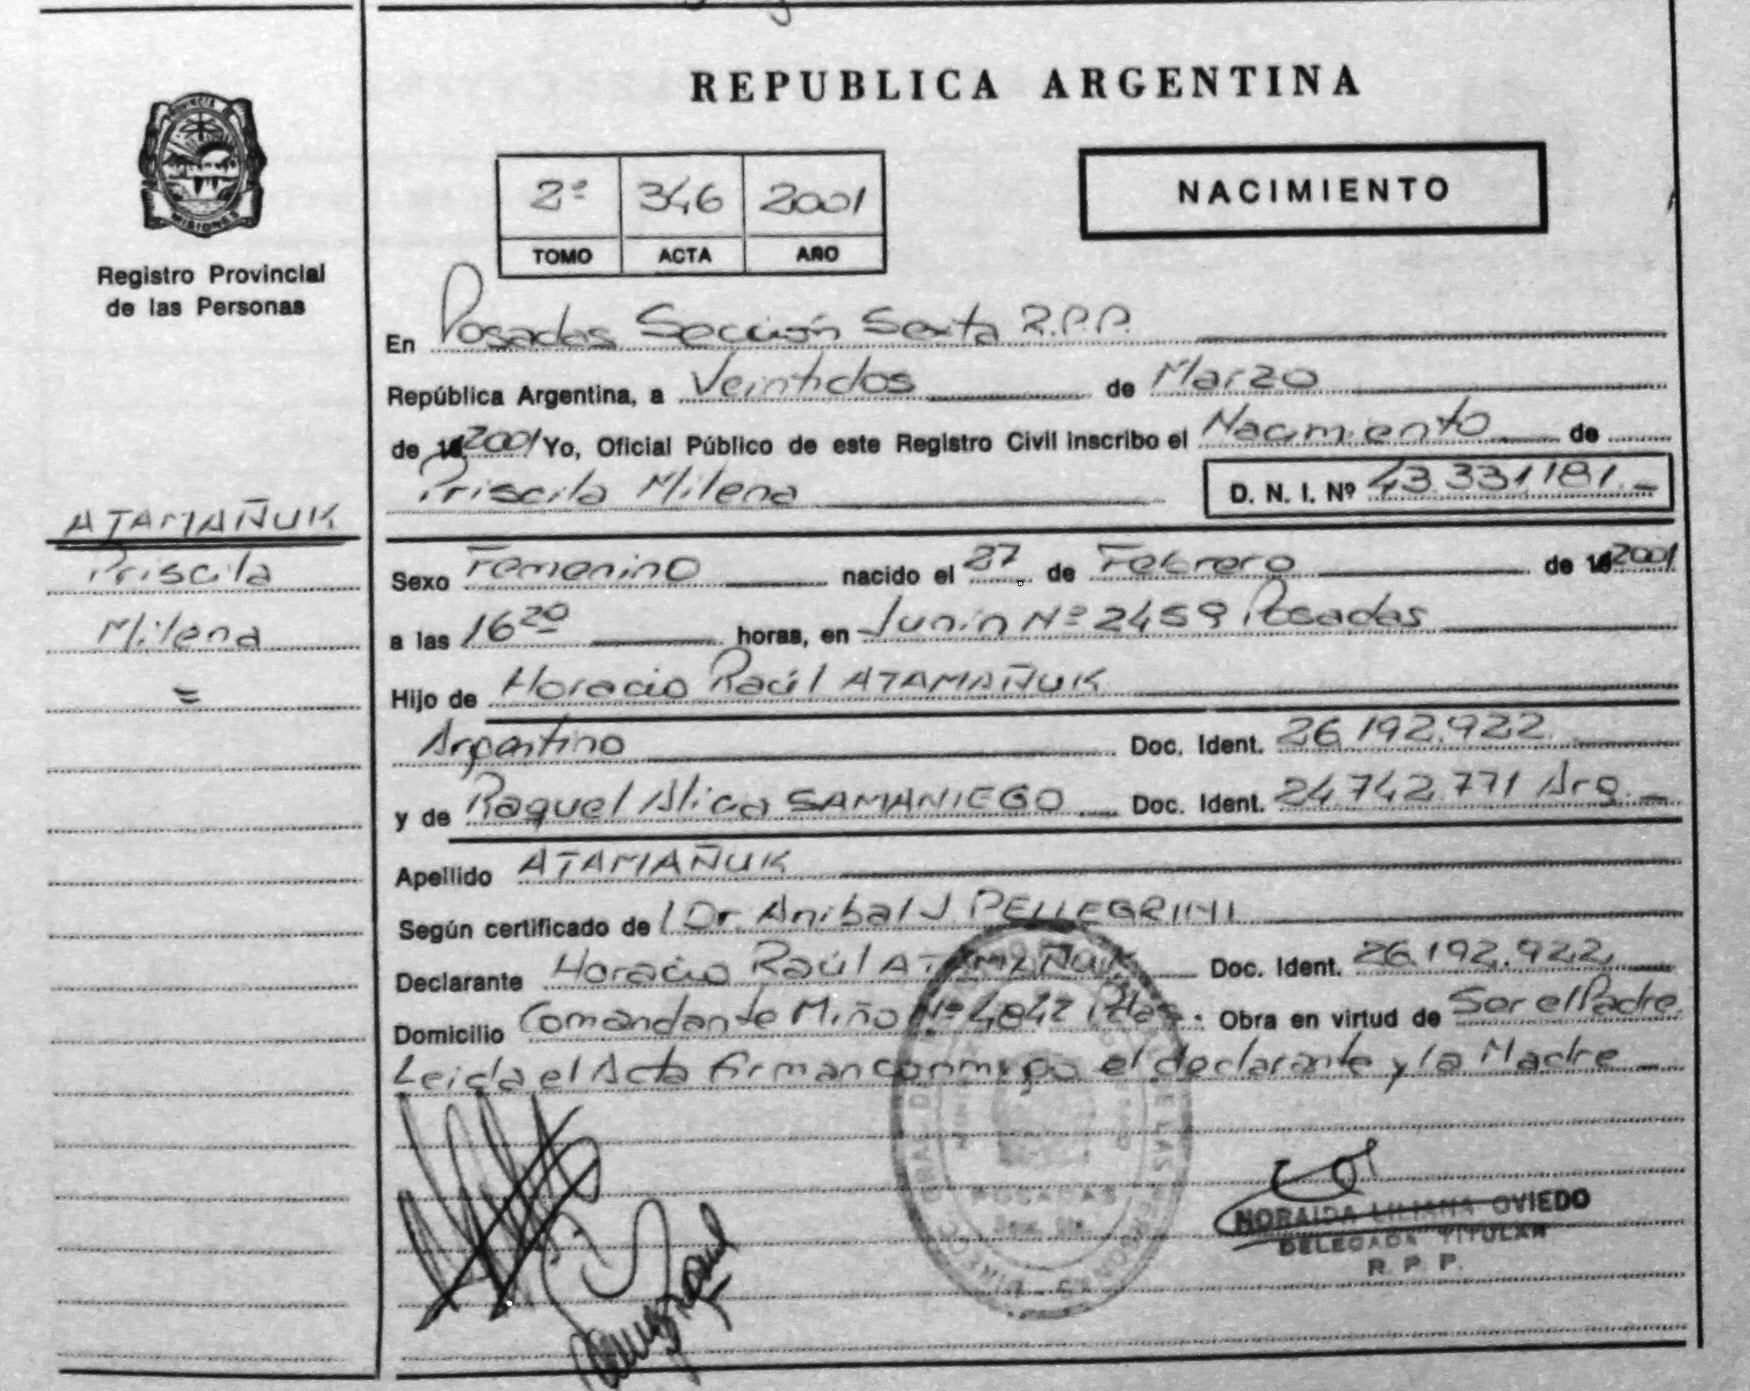 REPUBLICA ARGENTINA
2º 346 2001
TOMO ACTA AÑO
NACIMIENTO
MISIONES
Registro Provincial
de las Personas
En Posadas Sección Sexta R.P.P.
República Argentina, a Veintidos de Marzo
de 2001 Yo, Oficial Público de este Registro Civil inscribo el Nacimiento de
Priscila Milena D. N. I. Nº 43.331.181.-
ATAMAÑUK
Priscila
Milena
=
Sexo Femenino nacido el 27 de Febrero de 2001
a las 16 20 horas, en Junin Nº 2459 Posadas
Hijo de Horacio Raúl ATAMAÑUK
Argentino Doc. Ident. 26.192.922.
y de Raquel Alicia SAMANIEGO Doc. Ident. 24.742.771 Arg.-
Apellido ATAMAÑUK
Según certificado de Dr. Anibal J. PELLEGRINI
Declarante Horacio Raúl ATAMAÑUK Doc. Ident. 26.192.922
Domicilio Comandante Miño Nº 4842 Pdas. Obra en virtud de Ser el Padre.
Leida el Acta firman conmigo el declarante y la Madre
POSADAS
NORAIDA LILIANA OVIEDO
DELEGADA TITULAR
R. P. P.